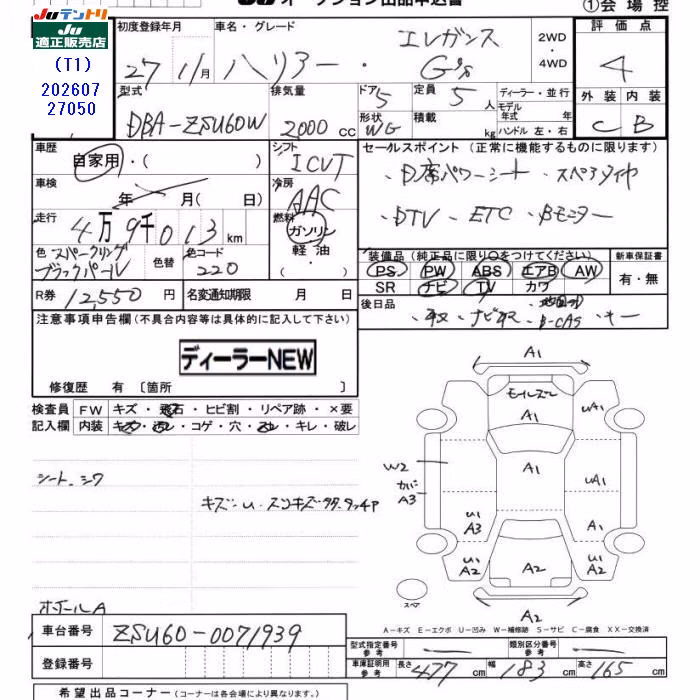 JUテントリ
JU適正販売店
(T1)
202607
27050
オークション出品申込書
①会場控
初度登録年月
27 11月
車名・グレード
ハリアー・エレガンス G's
2WD・4WD
評価点
4
型式
DBA-ZSU60W
排気量
2000 cc
ドア 5
定員 5人
ディーラー・並行
モデル年式 年
形状 WG
積載 kg
ハンドル 左・右
外装 C
内装 B
車歴
自家用・( )
シフト ICVT
車検
年 月( 日)
冷房 AAC
走行
4万9千013 km
燃料
ガソリン
軽油
・( )
色 スパークリングブラックパール
色替
色コード 220
R券 12,550円
名変通知期限 月 日
セールスポイント (正常に機能するものに限ります)
・D席パワーシート ・スペアタイヤ
・DTV ・ETC ・Bモニター
装備品 (純正品に限り○をつけてください)
PS PW ABS エアB AW
SR ナビ TV カワ
新車保証書
有・無
後日品
・取 ・ナビ取 ・キー
注意事項申告欄 (不具合内容等は具体的に記入して下さい)
ディーラーNEW
修復歴 有 〔箇所 〕
検査員記入欄
FW キズ・飛石・ヒビ割・リペア跡・×要
内装 キズ・汚レ・コゲ・穴・スレ・キレ・破レ
シート シワ
ホイールA
A1
モールズレ
A1
UA1
A1
W2
カバA3
UA1
U1
A3
A1
U1
A2
A2
U1
A2
スペア
A2
A-キズ E-エクボ U-凹み W-補修跡 S-サビ C-腐食 XX-交換済
車台番号 ZSU60-0071939
登録番号
型式指定番号 参考
類別区分番号 参考
車庫証明用 参考 長さ 477 cm 幅 183 cm 高さ 165 cm
希望出品コーナー (コーナーは各会場により異なります。)